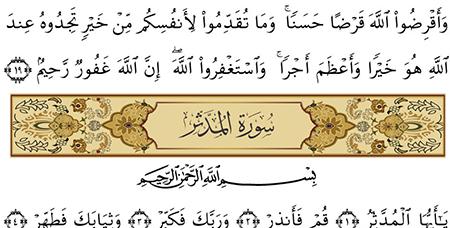 وَأَقْرِضُوا۟ ٱللَّهَ قَرْضًا حَسَنًا ۚ وَمَا تُقَدِّمُوا۟ لِأَنفُسِكُم مِّنْ خَيْرٍ تَجِدُوهُ عِندَ
ٱللَّهِ هُوَ خَيْرًا وَأَعْظَمَ أَجْرًا ۚ وَٱسْتَغْفِرُوا۟ ٱللَّهَ ۖ إِنَّ ٱللَّهَ غَفُورٌ رَّحِيمٌۢ ﴿١٩﴾
سُورَةُ المُدَّثِّر
بِسْمِ ٱللَّهِ ٱلرَّحْمَٰنِ ٱلرَّحِيمِ
يَٰٓأَيُّهَا ٱلْمُدَّثِّرُ ﴿١﴾ قُمْ فَأَنذِرْ ﴿٢﴾ وَرَبَّكَ فَكَبِّرْ ﴿٣﴾ وَثِيَابَكَ فَطَهِّرْ ﴿٤﴾